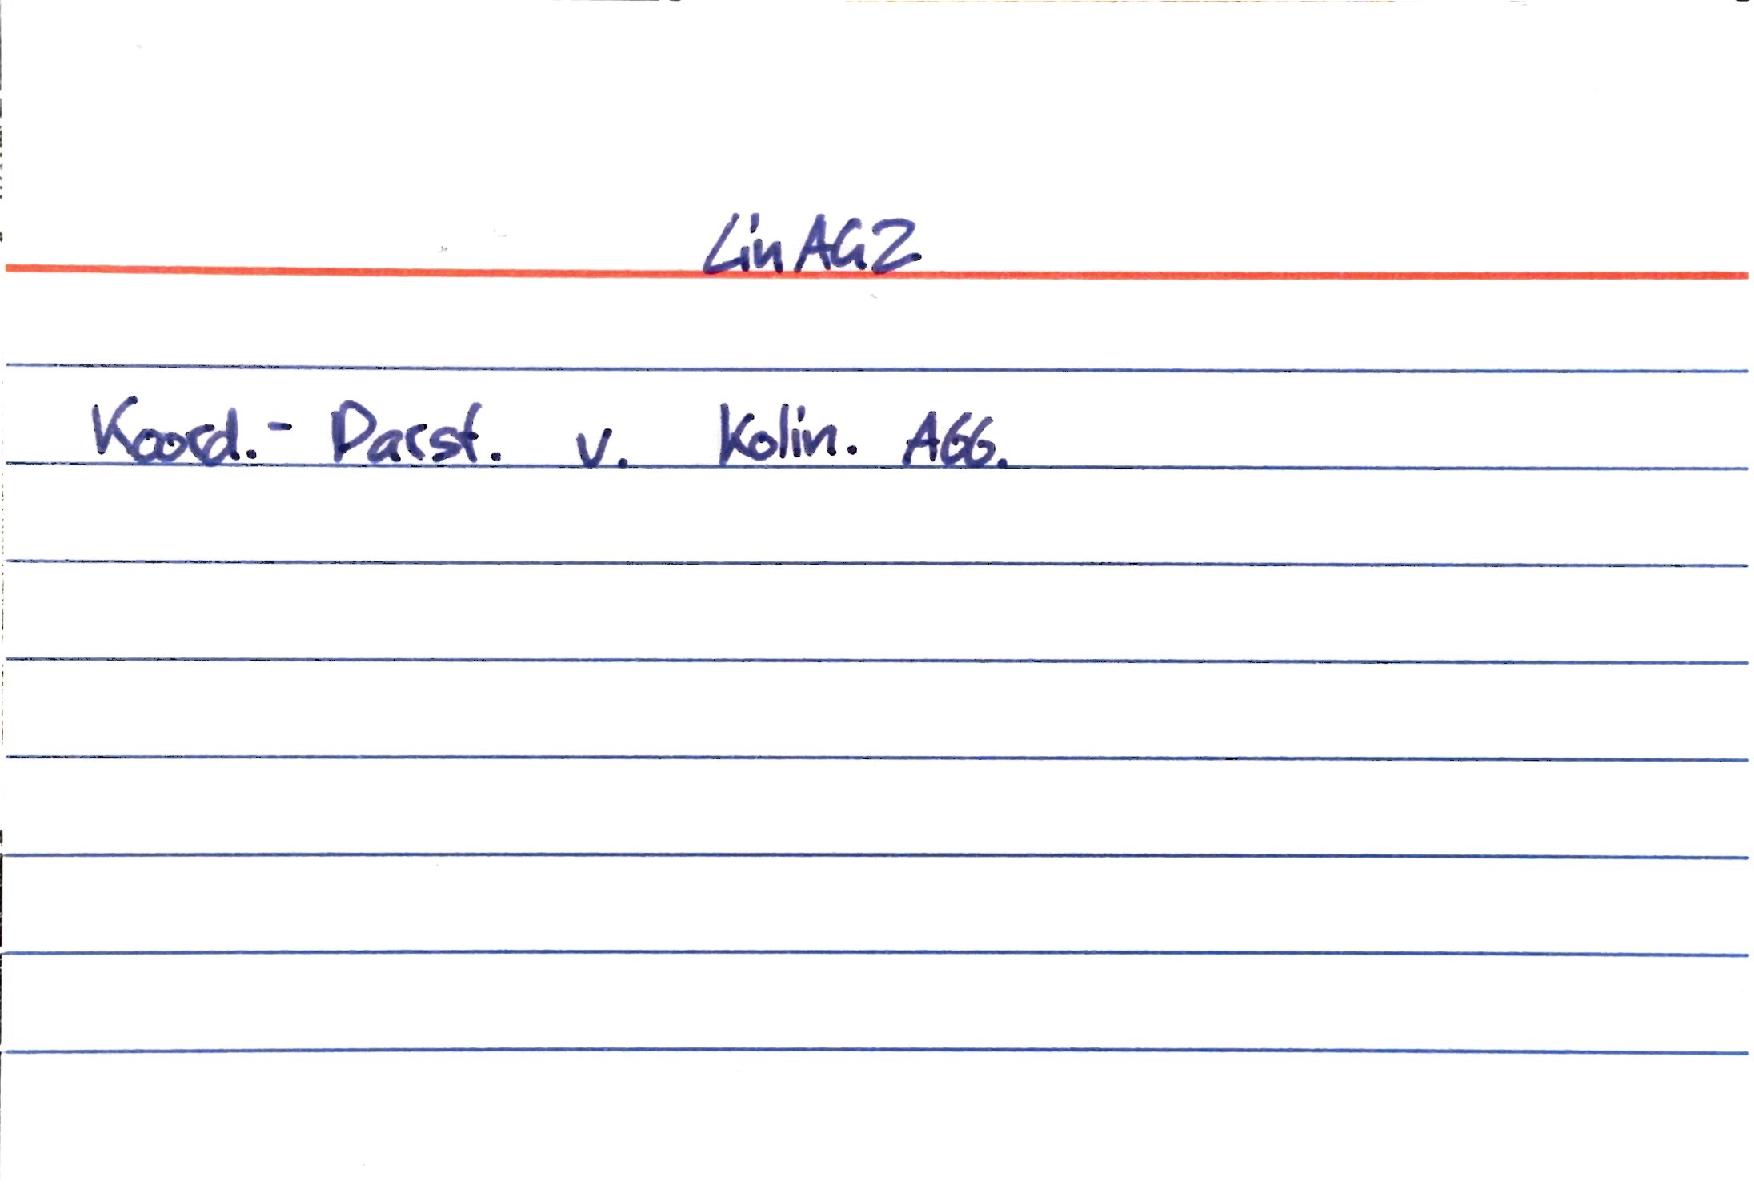 LinAG2
Koord.- Darst. v. Kolin. Abb.